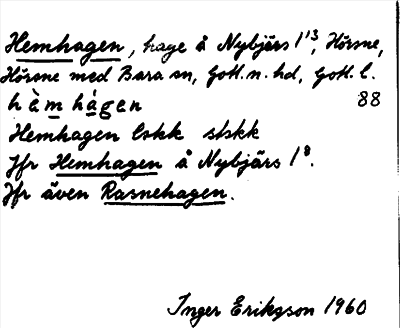 Hemhagen, hage å Nybjärs 1¹³, Hörsne,
Hörsne med Bara sn, Gotl. n. hd, Gotl. l.
hæ̀m hágen 88
Hemhagen lskk slskk
Jfr Hemhagen å Nybjärs 1⁸.
Jfr även Rasnehagen.
Inger Erikson 1960